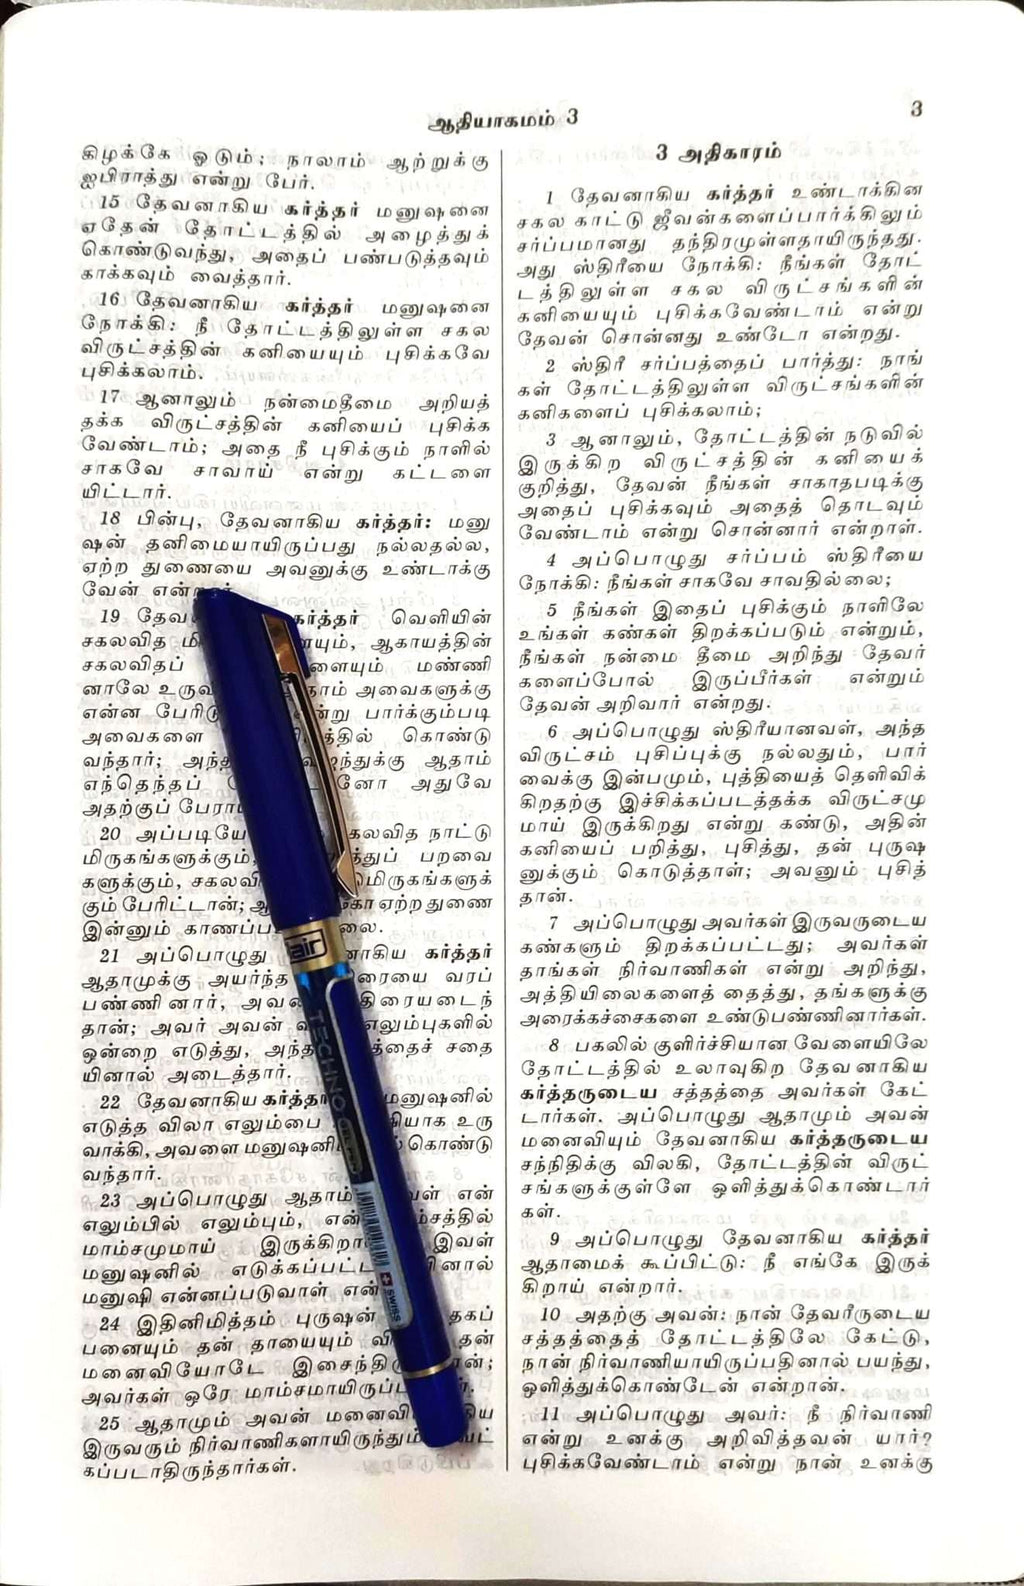 ஆதியாகமம் 3
3
கிழக்கே ஓடும்; நாலாம் ஆற்றுக்கு
ஐபிராத்து என்று பேர்.
15 தேவனாகிய கர்த்தர் மனுஷனை
ஏதேன் தோட்டத்தில் அழைத்துக்
கொண்டுவந்து, அதைப் பண்படுத்தவும்
காக்கவும் வைத்தார்.
16 தேவனாகிய கர்த்தர் மனுஷனை
நோக்கி: நீ தோட்டத்திலுள்ள சகல
விருட்சத்தின் கனியையும் புசிக்கவே
புசிக்கலாம்.
17 ஆனாலும் நன்மைதீமை அறியத்
தக்க விருட்சத்தின் கனியைப் புசிக்க
வேண்டாம்; அதை நீ புசிக்கும் நாளில்
சாகவே சாவாய் என்று கட்டளை
யிட்டார்.
18 பின்பு, தேவனாகிய கர்த்தர்: மனு
ஷன் தனிமையாயிருப்பது நல்லதல்ல,
ஏற்ற துணையை அவனுக்கு உண்டாக்கு
வேன் என்றார்.
19 கர்த்தர் வெளியின்
சகலவித ஆகாயத்தின்
சகலவிதப் மண்ணி
னாலே அவைகளுக்கு
என்ன பார்க்கும்படி
அவைகளை கொண்டு
வந்தார்; ஆதாம்
எந்தெந்தப் அதுவே
அதற்குப்
20 நாட்டு
மிருகங்களுக்கும், பறவை
களுக்கும், 
கும் பேரிட்டான்; ஏற்ற துணை
இன்னும்
21 அப்பொழுது கர்த்தர்
ஆதாமுக்கு அயர்ந்த வரப்
பண்ணினார்,
தான்; அவர் அவன் எலும்புகளில்
ஒன்றை எடுத்து, சதை
யினால் அடைத்தார்.
22 தேவனாகிய கர்த்தர் மனுஷனில்
எடுத்த விலா எலும்பை உரு
வாக்கி, அவளை கொண்டு
வந்தார்.
23 அப்பொழுது ஆதாம் என்
எலும்பில் எலும்பும்,
மாம்சமுமாய் இவள்
மனுஷனில்
மனுஷி என்னப்படுவாள்
24 இதினிமித்தம் புருஷன் தகப்
பனையும் தன் தாயையும் தன்
மனைவியோடே
அவர்கள் ஒரே
25 ஆதாமும் அவன்
இருவரும் நிர்வாணிகளாயிருந்தும்,
கப்படாதிருந்தார்கள்.
3 அதிகாரம்
1 தேவனாகிய கர்த்தர் உண்டாக்கின
சகல காட்டு ஜீவன்களைப்பார்க்கிலும்
சர்ப்பமானது தந்திரமுள்ளதாயிருந்தது.
அது ஸ்திரீயை நோக்கி: நீங்கள் தோட்
டத்திலுள்ள சகல விருட்சங்களின்
கனியையும் புசிக்கவேண்டாம் என்று
தேவன் சொன்னது உண்டோ என்றது.
2 ஸ்திரீ சர்ப்பத்தைப் பார்த்து: நாங்
கள் தோட்டத்திலுள்ள விருட்சங்களின்
கனிகளைப் புசிக்கலாம்;
3 ஆனாலும், தோட்டத்தின் நடுவில்
இருக்கிற விருட்சத்தின் கனியைக்
குறித்து, தேவன் நீங்கள் சாகாதபடிக்கு
அதைப் புசிக்கவும் அதைத் தொடவும்
வேண்டாம் என்று சொன்னார் என்றாள்.
4 அப்பொழுது சர்ப்பம் ஸ்திரீயை
நோக்கி: நீங்கள் சாகவே சாவதில்லை;
5 நீங்கள் இதைப் புசிக்கும் நாளிலே
உங்கள் கண்கள் திறக்கப்படும் என்றும்,
நீங்கள் நன்மை தீமை அறிந்து தேவர்
களைப்போல் இருப்பீர்கள் என்றும்
தேவன் அறிவார் என்றது.
6 அப்பொழுது ஸ்திரீயானவள், அந்த
விருட்சம் புசிப்புக்கு நல்லதும், பார்
வைக்கு இன்பமும், புத்தியைத் தெளிவிக்
கிறதற்கு இச்சிக்கப்படத்தக்க விருட்சமு
மாய் இருக்கிறது என்று கண்டு, அதின்
கனியைப் பறித்து, புசித்து, தன் புருஷ
னுக்கும் கொடுத்தாள்; அவனும் புசித்
தான்.
7 அப்பொழுது அவர்கள் இருவருடைய
கண்களும் திறக்கப்பட்டது; அவர்கள்
தாங்கள் நிர்வாணிகள் என்று அறிந்து,
அத்தியிலைகளைத் தைத்து, தங்களுக்கு
அரைக்கச்சைகளை உண்டுபண்ணினார்கள்.
8 பகலில் குளிர்ச்சியான வேளையிலே
தோட்டத்தில் உலாவுகிற தேவனாகிய
கர்த்தருடைய சத்தத்தை அவர்கள் கேட்
டார்கள். அப்பொழுது ஆதாமும் அவன்
மனைவியும் தேவனாகிய கர்த்தருடைய
சந்நிதிக்கு விலகி, தோட்டத்தின் விருட்
சங்களுக்குள்ளே ஒளித்துக்கொண்டார்
கள்.
9 அப்பொழுது தேவனாகிய கர்த்தர்
ஆதாமைக் கூப்பிட்டு: நீ எங்கே இருக்
கிறாய் என்றார்.
10 அதற்கு அவன்: நான் தேவரீருடைய
சத்தத்தைத் தோட்டத்திலே கேட்டு,
நான் நிர்வாணியாயிருப்பதினால் பயந்து,
ஒளித்துக்கொண்டேன் என்றான்.
11 அப்பொழுது அவர்: நீ நிர்வாணி
என்று உனக்கு அறிவித்தவன் யார்?
புசிக்கவேண்டாம் என்று நான் உனக்கு
TECHNO
SWISS